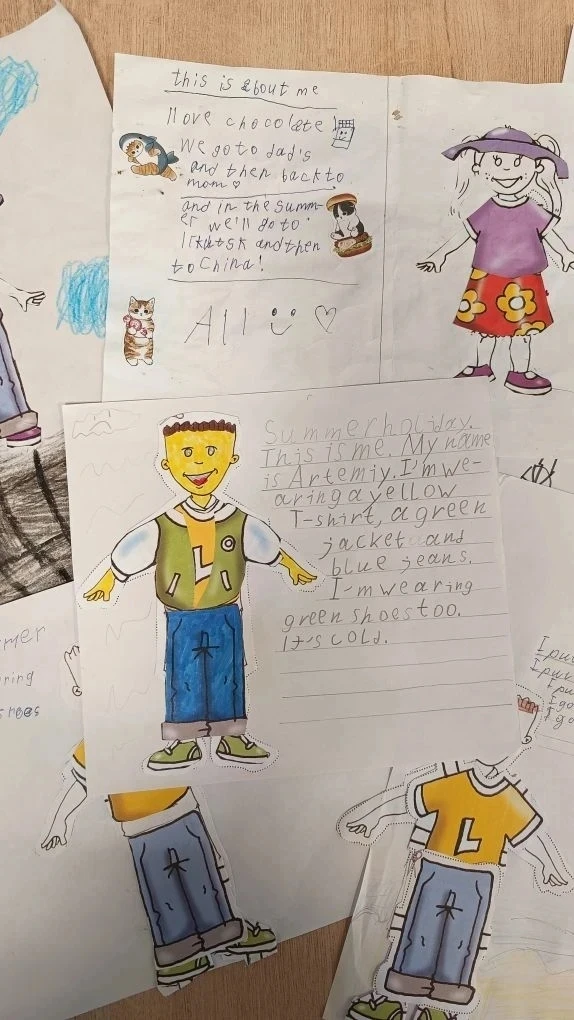 this is about me
I love chocolate!
We go to dad's
and then back to
mom ♡
and in the summ-
er we'll go to
Irkutsk and then
to China!
All
Summer holiday.
This is me. My name
is Artemiy. I'm we-
aring a yellow
T-shirt, a green
jacket and
blue jeans.
I'm wearing
green shoes too.
It's cold.
L
mer
ring
I pu
I pu
I go
I go
L